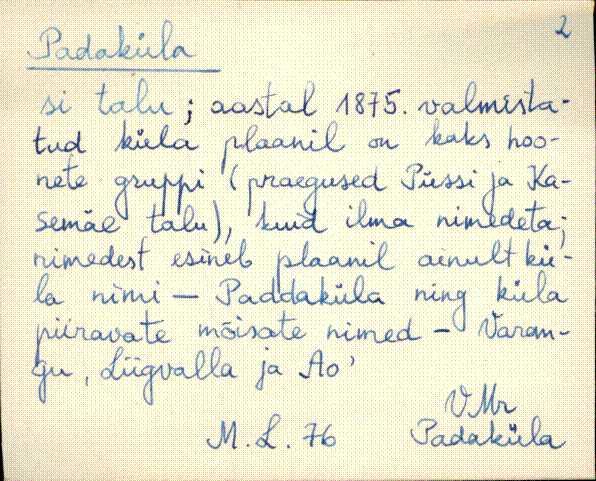 2
Padaküla
si talu; aastal 1875. valmista-
tud küla plaanil on kaks hoo-
nete gruppi (praegused Püssi ja Ka-
semäe talu), kuid ilma nimedeta;
nimedest esineb plaanil ainult kü-
la nimi — Paddaküla ning küla
piiravate mõisate nimed - Varan-
gu, Liigvalla ja Ao'
VMr
M.L. 76 Padaküla